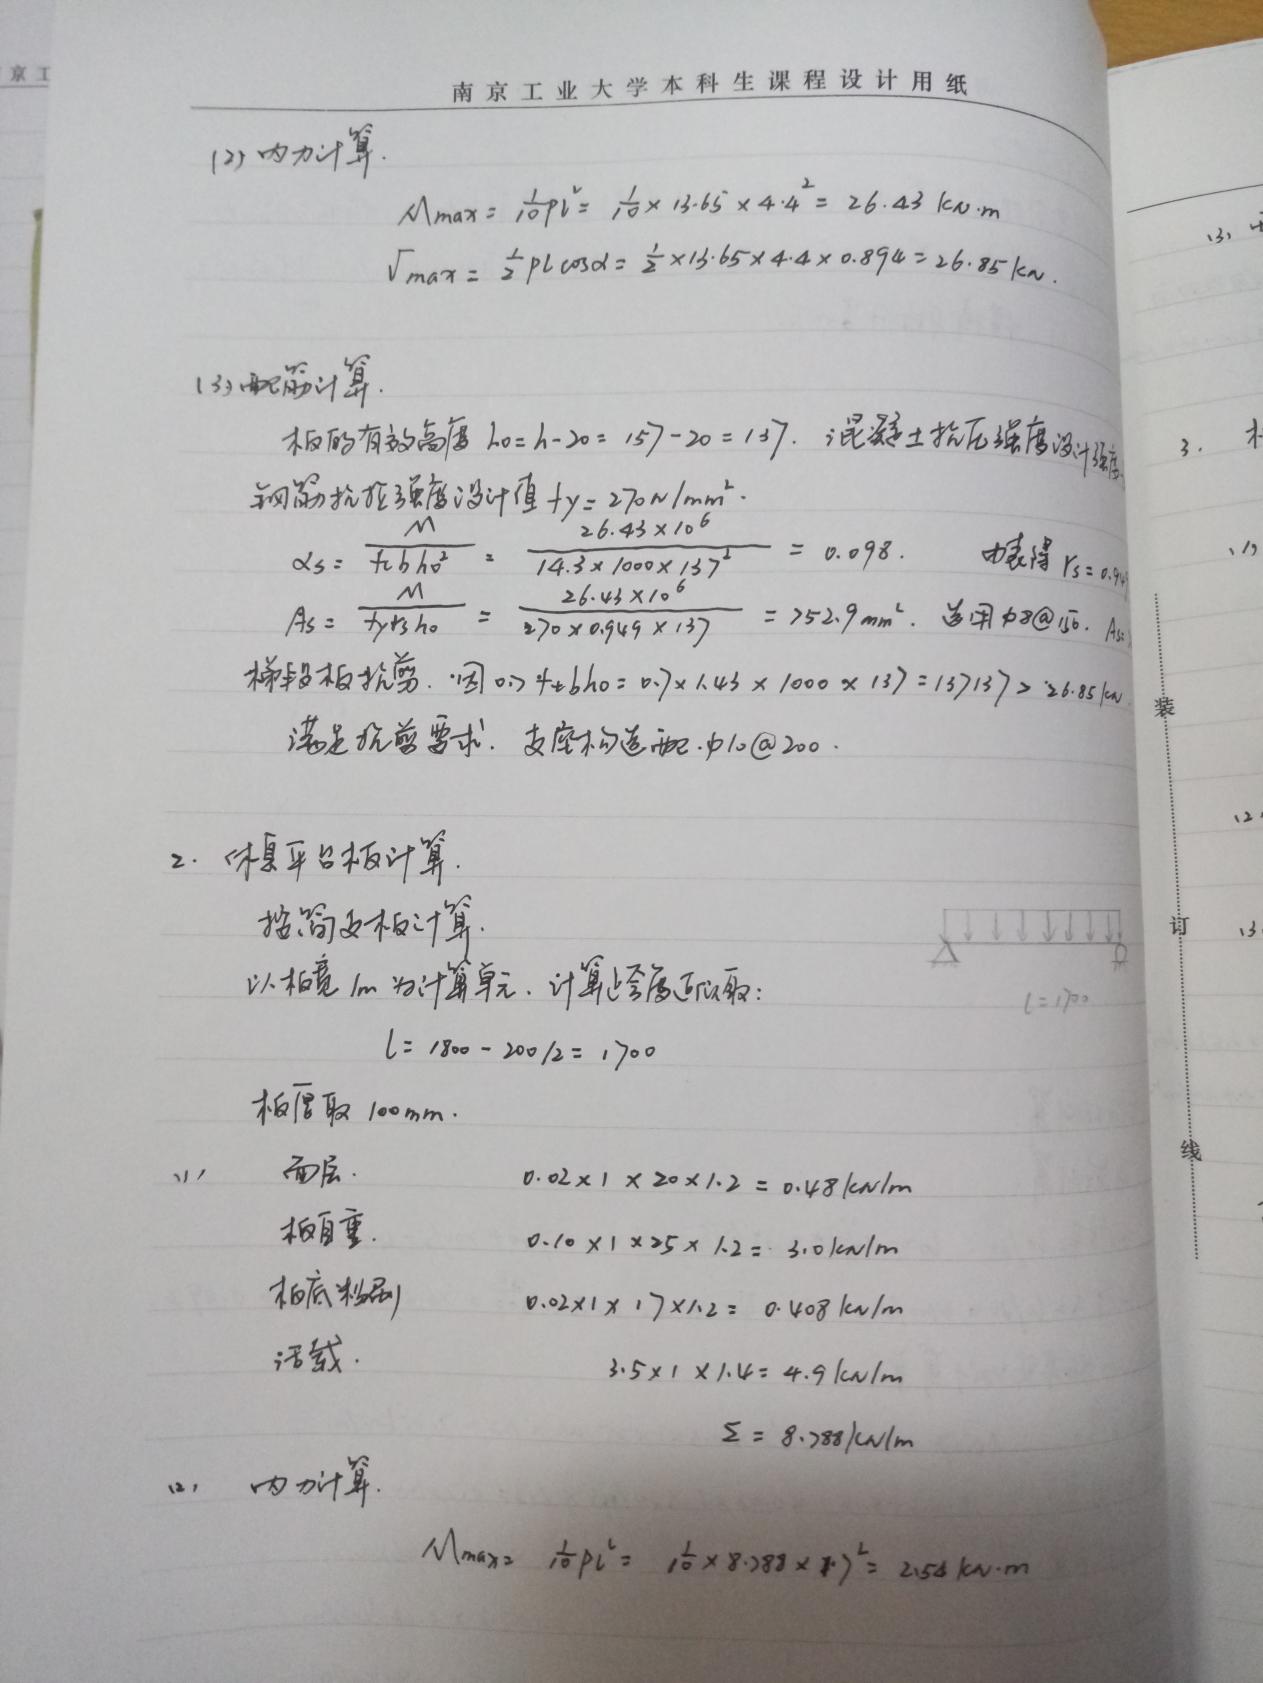 南京工业大学本科生课程设计用纸
(2) 内力计算.
Mmax = 1/10 pl² = 1/10 × 13.65 × 4.4² = 26.43 kN·m
Vmax = 1/2 pl cosα = 1/2 × 13.65 × 4.4 × 0.894 = 26.85 kN.
(3) 配筋计算.
板的有效高度 h0 = h-20 = 157-20 = 137. 混凝土抗压强度设计强度
钢筋抗拉强度设计值 fy = 270 N/mm².
αs = M / fcbh0² = 26.43×10⁶ / 14.3×1000×137² = 0.098. 由表得 rs = 0.949
As = M / fyrsh0 = 26.43×10⁶ / 270×0.949×137 = 752.9mm². 选用φ8@150. As=
梯段板抗剪. 因 0.7ftbh0 = 0.7×1.43×1000×137 = 137137 > 26.85kN
满足抗剪要求. 支座构造配φ10@200.
2. 休息平台板计算.
按简支板计算.
以板宽1m为计算单元. 计算跨度近似取:
l = 1800 - 200/2 = 1700
l=1700
板厚取 100mm.
(1) 面层. 0.02×1×20×1.2 = 0.48kN/m
板自重. 0.10×1×25×1.2 = 3.0kN/m
板底粉刷 0.02×1×17×1.2 = 0.408kN/m
活载. 3.5×1×1.4 = 4.9kN/m
Σ = 8.788kN/m
(2) 内力计算.
Mmax = 1/10 pl² = 1/10 × 8.788 × 1.7² = 2.54 kN·m
装
订
线
(3)
3.
(1)
(2)
(3)